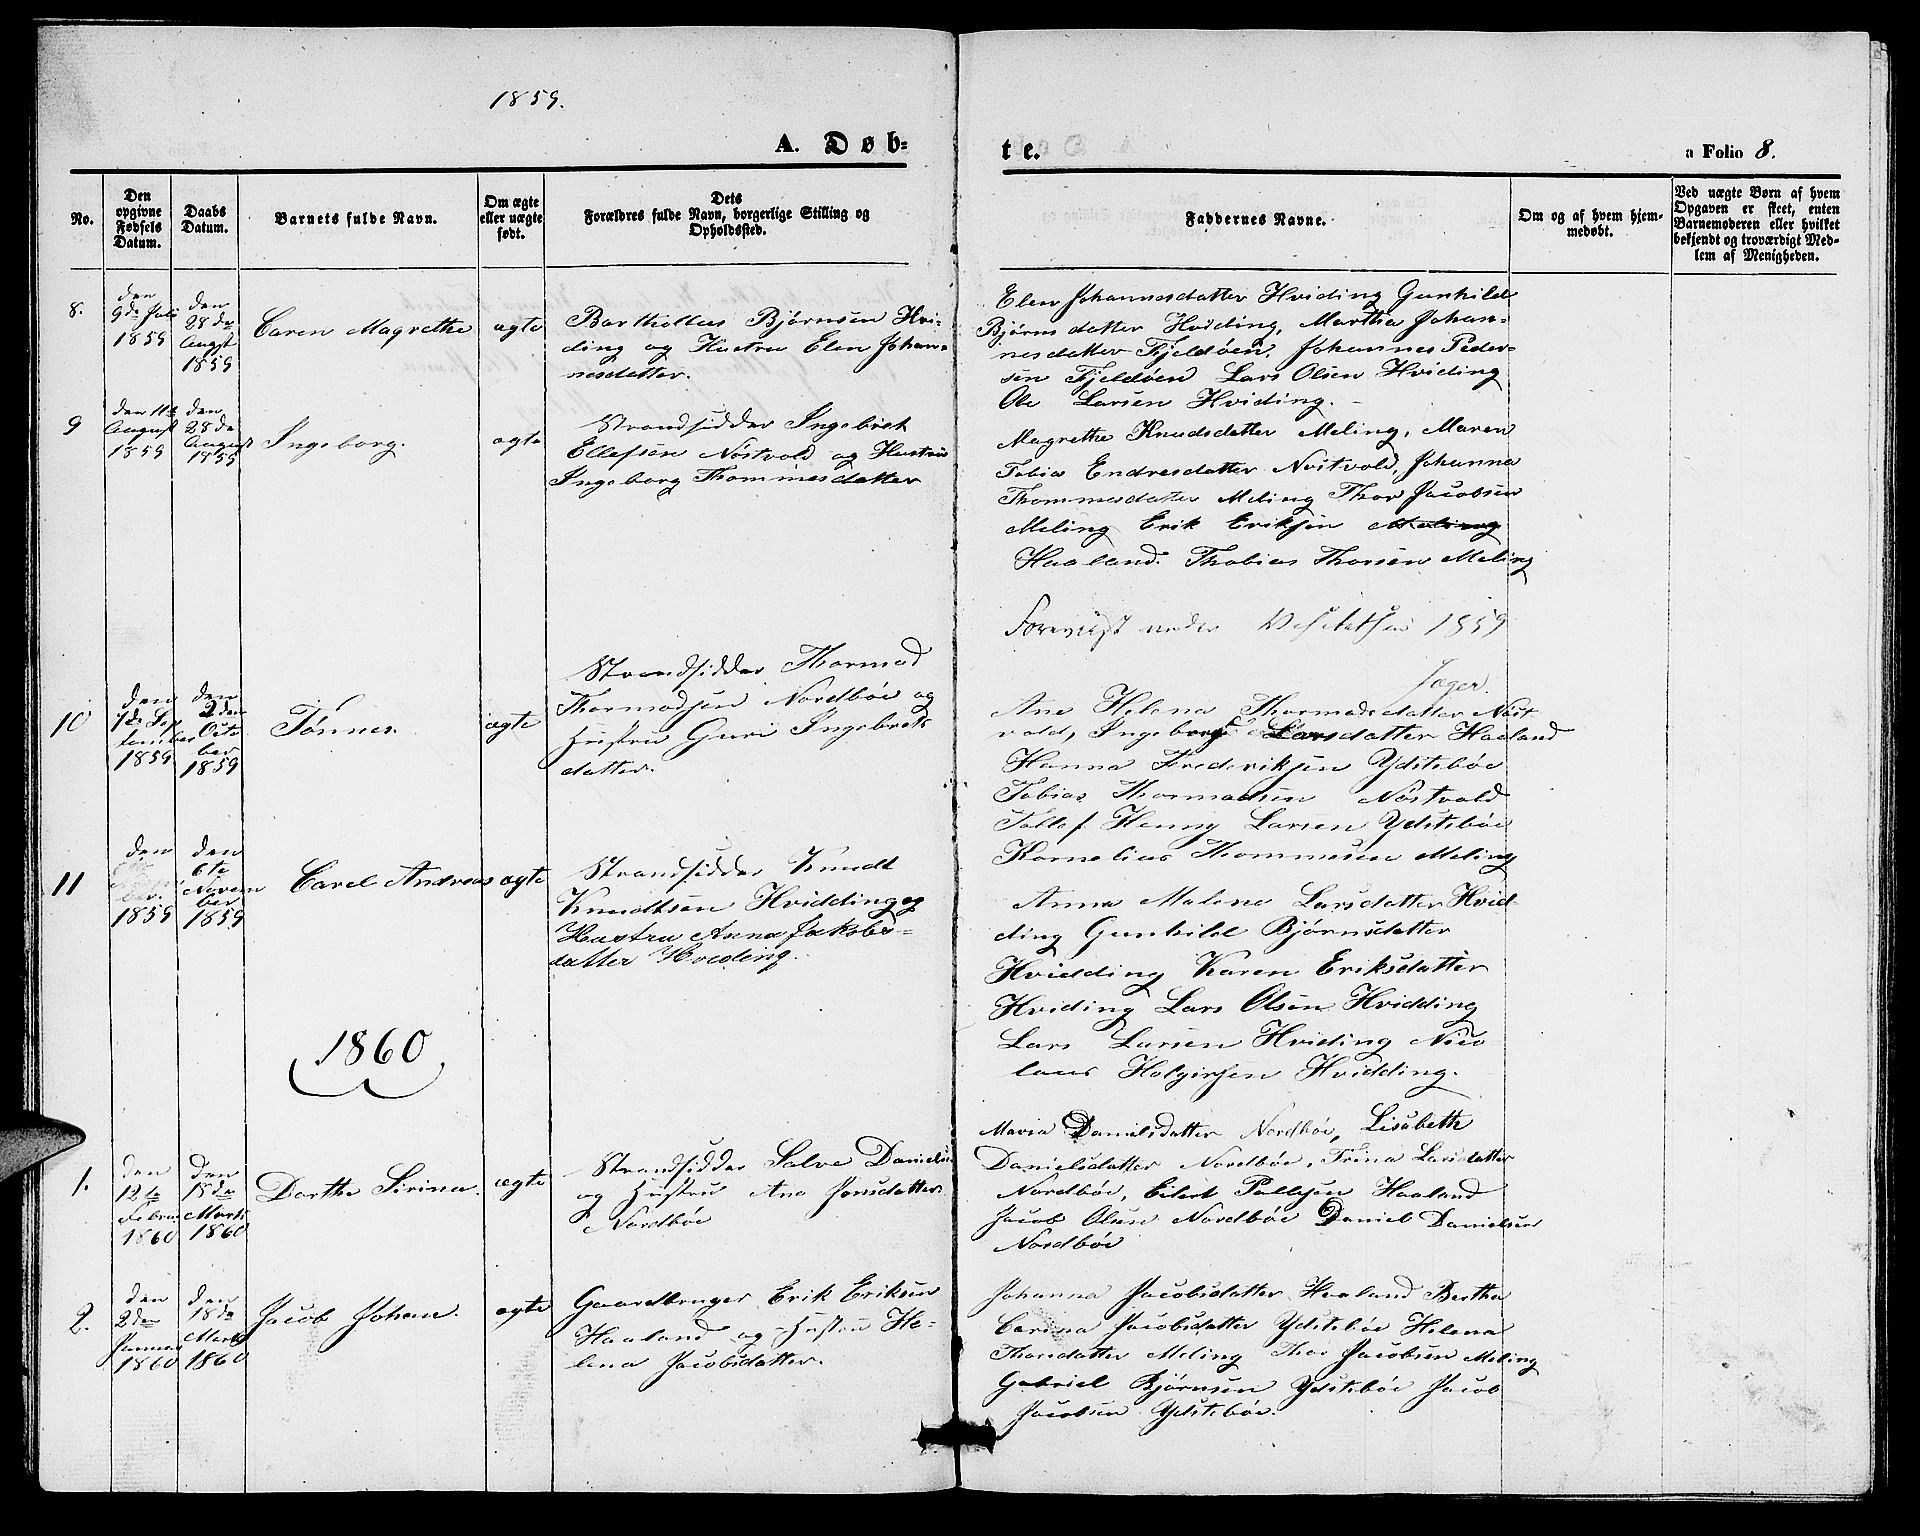 1859.
A. Døb-
te.
a Folio 8.
No.
Den
opgivne
Fødsels
Datum.
Daabs
Datum.
Barnets fulde Navn.
Om ægte
eller uægte
født.
Dets
Forældres fulde Navn, borgerlige Stilling og
Opholdssted.
Faddernes Navne.
Om og af hvem hjem-
medøbt.
Ved uægte Børn af hvem
Opgaven er skeet, enten
Barnemoderen eller hvilket
bekjendt og troværdigt Med-
lem af Menigheden.
8.
den
9de Juli
1859
den
28de
August
1859
Caren Magrethe
ægte
Bartholleus Bjørnsen Hvi-
ding og Hustru Elen Johan-
nesdatter.
Elen Johannesdatter Hviding Gunhild
Bjørnsdatter Hviding, Martha Johan-
nesdatter Fjeldøen, Johannes Peder-
sen Fjeldøen Lars Olsen Hviding
Ole Larsen Hviding.
9
den 11te
August
1859
den
28de
August
1859
Ingeborg.
ægte
Strandsidder Ingebret
Ellefsen Nøstvold og Hustru
Ingeborg Thommesdatter
Magrethe Knudsdatter Meling, Maren
Tobia Endresdatter Nøstvold, Johanna
Thommesdatter Meling Thor Jacobsen
Meling Erik Eriksen Meling
Haaland. Thobias Thorsen Meling
under Visitatsen 1859
Jæger.
10
den
7de Sep
tember
1859
den
2den
Octo
ber
1859
Tønnes.
ægte
Strandsidder Thormod
Thormodsen Nordbøe og
Hustru Guri Ingebrets
datter.
Ane Helena Thormodsdatter Nøst
vold, Ingeborg Larsdatter Haaland
Hanna Frederiksen Ydstebøe
Tobias Thormodsen Nøstvold
Tollef Henny Larsen Ydstebøe
Kornelius Thommesen Meling
11
den
1859
den
6te
Novem
ber
1859
Carel Andreas
ægte
Strandsidder Knudt
Knudtsen Hvidding og
Hustru Anna Jakobs-
datter Hviding.
Anna Malene Larsdatter Hvid-
ding Gunhild Bjørnsdatter
Hvidding Karen Eriksdatter
Hviding Lars Olsen Hvidding
Lars Larsen Hviding Nico
laus Holgersen Hvidding.
1860
1.
den
12te
Febru
1860
den
18de
Marts
1860
Dorthe Sirina.
ægte
Strandsidder Salve Danielsen
og Hustru Ane Jonsdatter
Nordbøe
Maria Danielsdatter Nordbøe, Lisabeth
Danielsdatter Nordbøe, Trina Larsdatter
Nordbøe, Eilert Pallesen Haaland
Jacob Olsen Nordbøe Daniel Danielsen
Nordbøe
2.
den
2den
Januar
1860
den
18de
Marts
1860
Jacob Johan.
ægte
Gaardbruger Erik Eriksen
Haaland og Hustru He-
lena Jacobsdatter.
Johanna Jacobsdatter Haaland Bertha
Carina Jacobsdatter Ydstebøe Helena
Thorsdatter Meling Thor Jacobsen Meling
Gabriel Bjørnsen Ydstebøe Jacob
Jacobsen Ydstebøe.